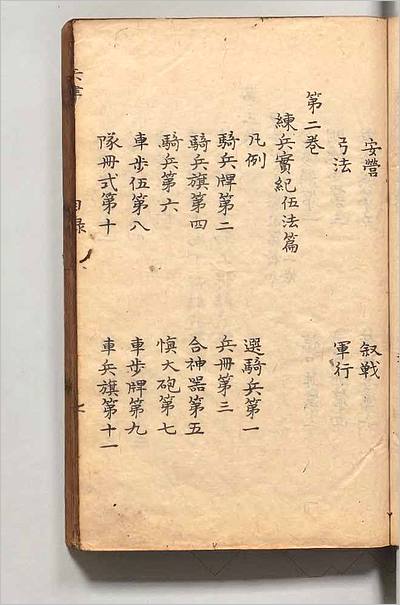 安營
叙戦
弓法
軍行
第二巻
練兵實紀伍法篇
凡例
選騎兵第一
騎兵牌第二
兵冊第三
騎兵旗第四
合神器第五
騎兵第六
慎大砲第七
車歩伍第八
車歩牌第九
隊冊式第十
車兵旗第十一
目録